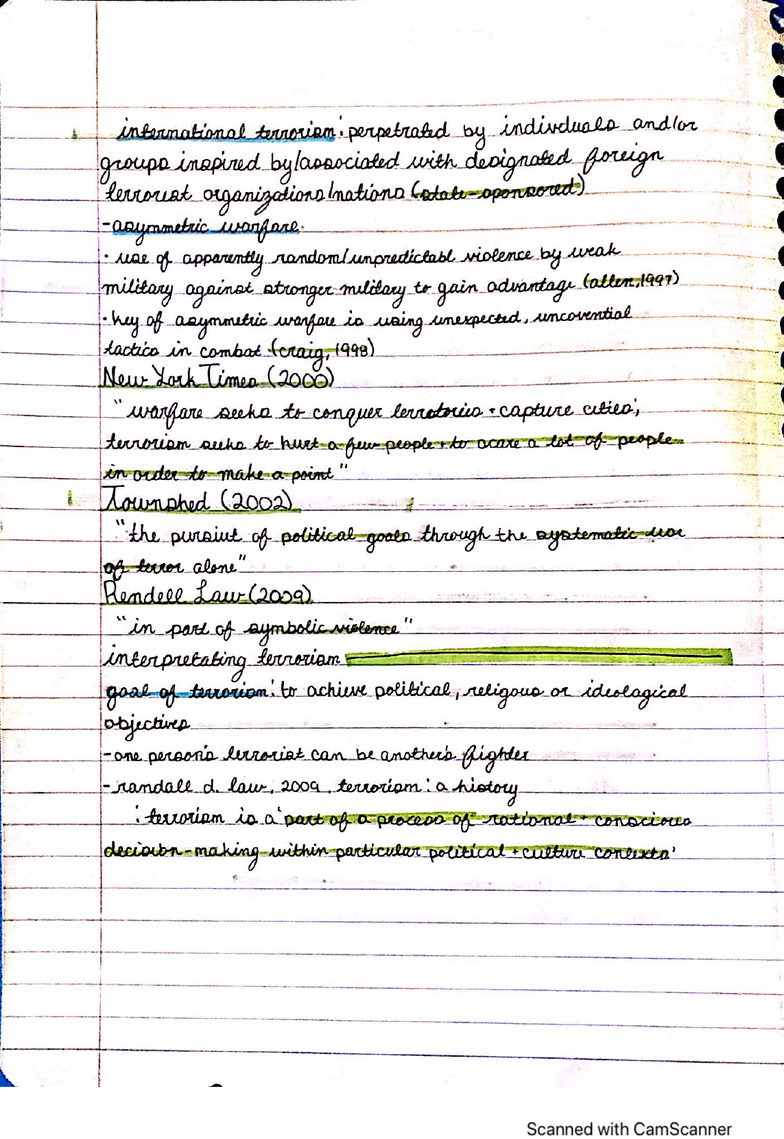 international terrorism: perpetrated by individuals and/or
groups inspired by/associated with designated foreign
terrorist organizations/nations (state-sponsored)
-asymmetric warfare.
· use of apparently random/unpredictabl violence by weak
military against stronger military to gain advantage (allen, 1997)
·key of asymmetric warfare is using unexpected, uncovential
tactics in combat (craig, 1998)
New York Times (2000)
"warfare seeks to conquer terrotories + capture cities;
terrorism seeks to hurt a few people + to scare a lot of people
in order to make a point"
Townshed (2002)
"the pursiut of political goals through the systematic use
of terror alone"
Rendell Law (2009)
"in part of symbolic violence"
interpretating terrorism
goal of terrorism: to achieve political, religous or ideological
objectives
-one person's terrorist can be another's fighter
-randall d. law, 2009, terrorism: a history
: terrorism is a 'part of a process of rational + conscious
decision-making within particular political + culture contexts'
Scanned with CamScanner